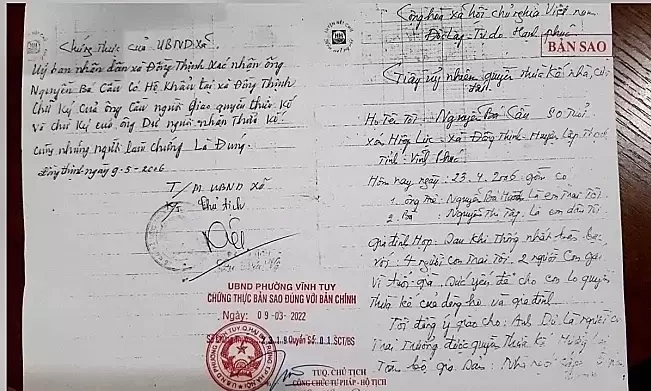 Chứng thực của UBND Xã.
Uỷ ban nhân dân xã Đồng Thịnh xác nhận ông
Nguyễn Bá Cầu có Hộ Khẩu tại xã Đồng Thịnh
chữ ký của ông Cầu người giao quyền thừa kế
và chữ ký của ông Dư người nhận thừa kế
cùng những người làm chứng Là Đúng.
Đồng thịnh ngày 9-5-2006
T/M UBND Xã
Chủ tịch
UBND PHƯỜNG VĨNH TUY
CHỨNG THỰC BẢN SAO ĐÚNG VỚI BẢN CHÍNH
Ngày: 09-03-2022
Quyển Số: 01.SCT/BS
TUQ. CHỦ TỊCH
CÔNG CHỨC TƯ PHÁP - HỘ TỊCH
Cộng hoà xã hội chủ nghĩa Việt nam
Độc Lập - Tự do - Hạnh phúc
BẢN SAO
Giấy uỷ nhiệm quyền thừa kế nhà,
Họ Tên Tôi - Nguyễn Bá Cầu 80 Tuổi
xóm Hiệp Lực - Xã Đồng Thịnh - Huyện Lập Thạch
Tỉnh - Vĩnh Phúc
Hôm nay ngày: 23.4.2006 gồm có
1. ông Nguyễn Bá Là em Trai Tôi
2. Bà Nguyễn Thị Tập. Là em dâu Tôi
gia đình Họp. Sau Khi Thống nhất
với: 4 người con Trai Tôi. 2 người Con gái
Vì tuổi già. Sức yếu, để cho con lo quyền
Thừa kế của dòng họ và gia đình
Tôi đồng ý giao cho: Anh Dư là người con
Trai Trưởng được quyền Thừa Kế
Toàn bộ gia Sau: Nhà